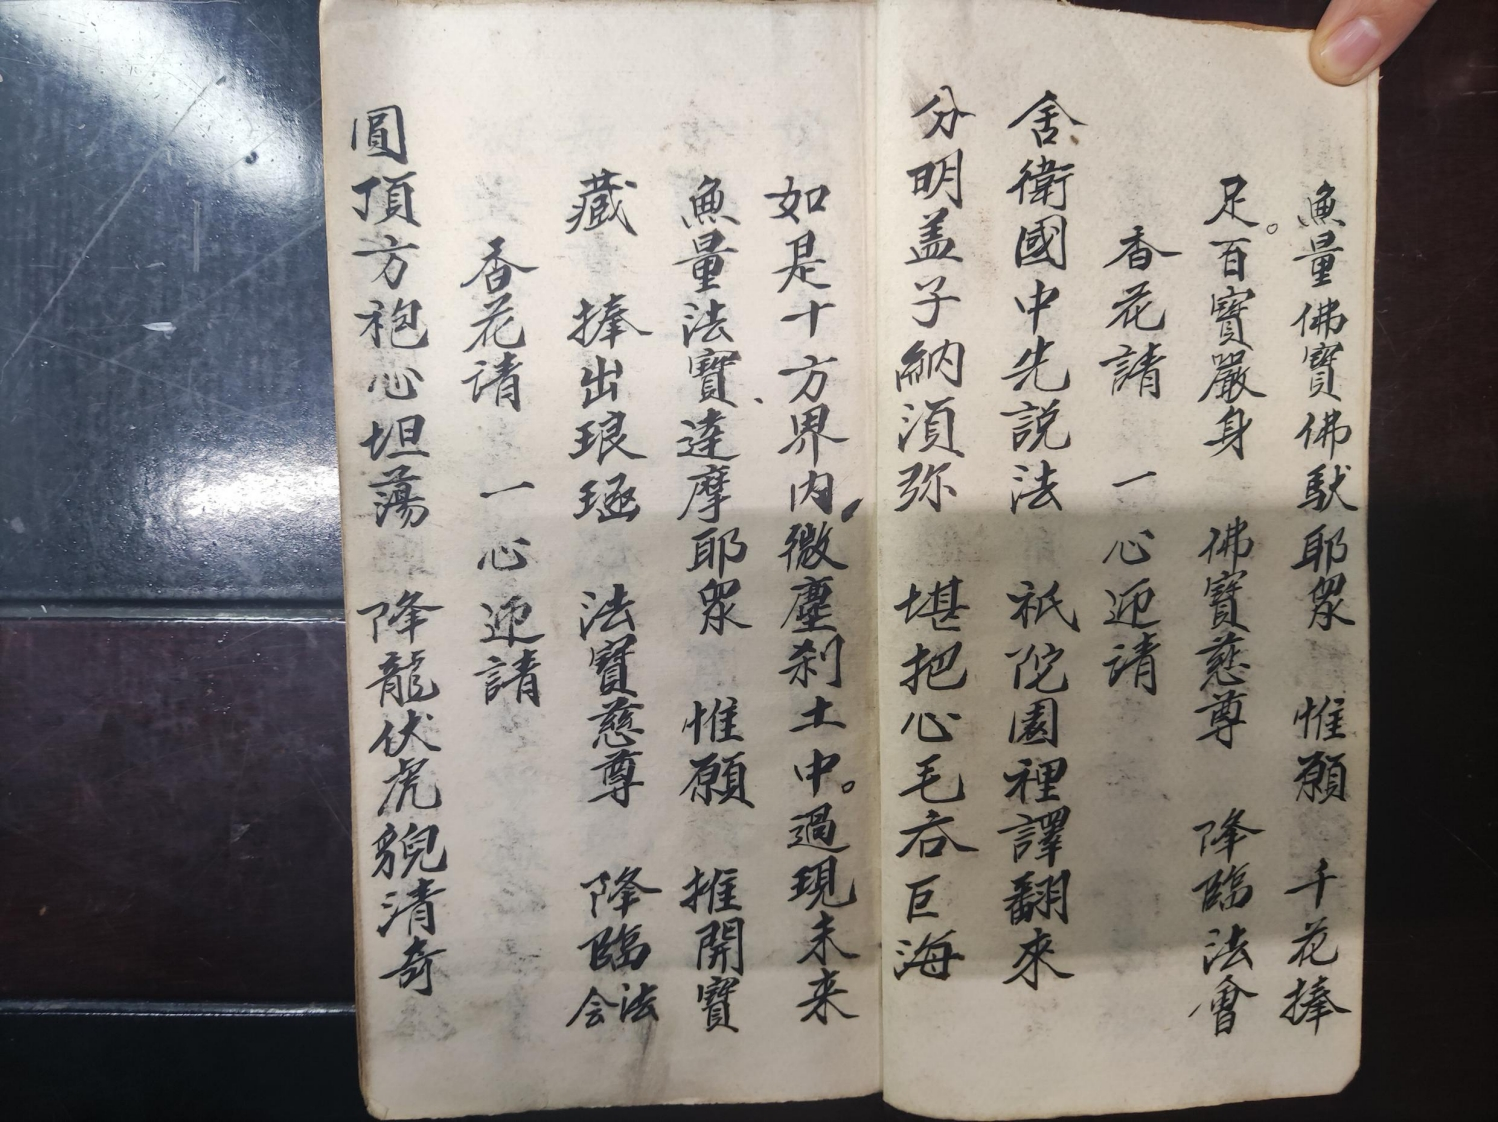 無量佛寶佛馱耶眾　惟願　千花捧
足。百寶嚴身　佛寶慈尊　降臨法會
香花請　一心迎請
舍衛國中先説法　祇陀園裡譯翻來
分明盖子納湏弥　堪把心毛吞巨海
如是十方界内，微塵刹土中。過現未来
無量法寶、達摩耶眾　惟願　推開寶
藏　捧出琅函　法寶慈尊　降臨法会
香花请　一心迎請
圓頂方袍心坦蕩　降龍伏虎貌清奇